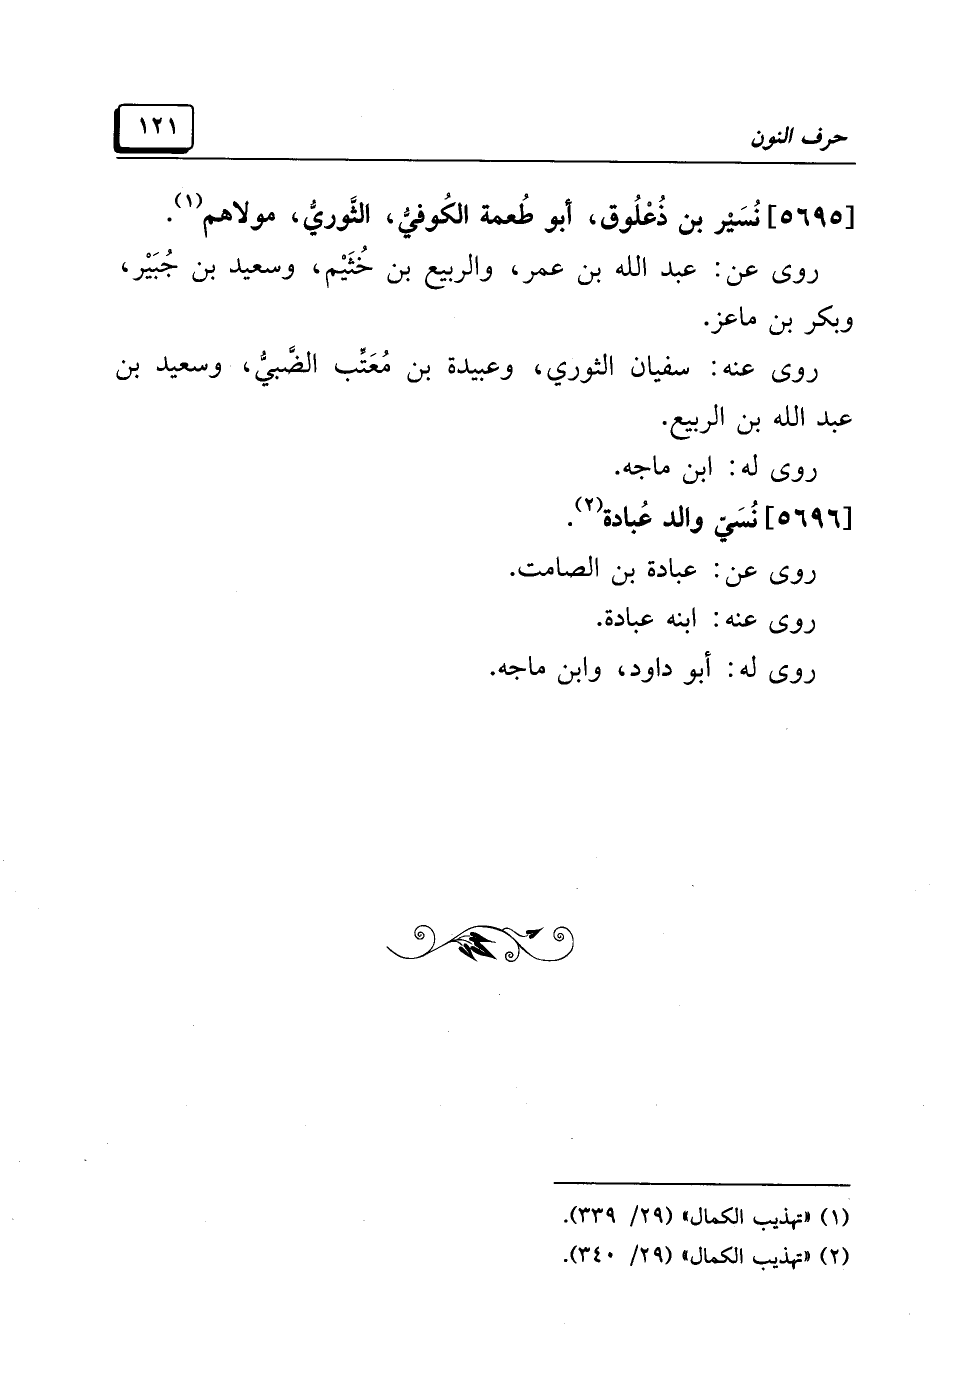 حرف النون
١٢١
[٥٦٩٥] نُسَيْر بن ذُعْلُوق، أبو طُعمة الكُوفيُّ، الثَّوريُّ، مولاهم(١).
روى عن: عبد الله بن عمر، والربيع بن خُثَيْم، وسعيد بن جُبَيْر،
وبكر بن ماعز.
روى عنه: سفيان الثوري، وعبيدة بن مُعَتِّب الضَّبيُّ، وسعيد بن
عبد الله بن الربيع.
روى له: ابن ماجه.
[٥٦٩٦] نُسَيّ والد عُبادة(٢).
روى عن: عبادة بن الصامت.
روى عنه: ابنه عبادة.
روى له: أبو داود، وابن ماجه.
(١) «تهذيب الكمال» (٢٩/ ٣٣٩).
(٢) «تهذيب الكمال» (٢٩/ ٣٤٠).